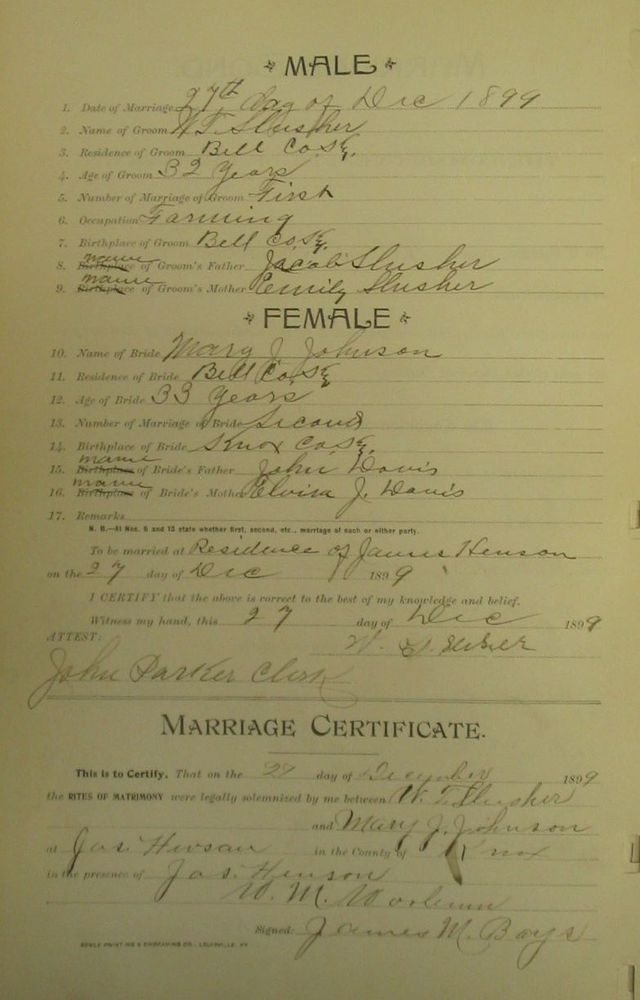 MALE
1. Date of Marriage 27th day of Dec 1899
2. Name of Groom W.T. Slusher
3. Residence of Groom Bell Co. Ky.
4. Age of Groom 32 Years
5. Number of Marriage of Groom First
6. Occupation Farming
7. Birthplace of Groom Bell Co. Ky.
name
8. Birthplace of Groom's Father Jacob Slusher
name
9. Birthplace of Groom's Mother Emily Slusher
FEMALE
10. Name of Bride Mary J. Johnson
11. Residence of Bride Bell Co. Ky
12. Age of Bride 33 Years
13. Number of Marriage of Bride Second
14. Birthplace of Bride Knox Co. Ky.
name
15. Birthplace of Bride's Father John Davis
name
16. Birthplace of Bride's Mother Elvira J. Davis
17. Remarks
N. B.—At Nos. 5 and 13 state whether first, second, etc., marriage of each or either party.
To be married at Residence of James Henson
on the 27 day of Dec 1899
I CERTIFY that the above is correct to the best of my knowledge and belief.
Witness my hand, this 27 day of Dec 1899
ATTEST: W.
John Parker Clerk
MARRIAGE CERTIFICATE.
This is to Certify, That on the 27 day of December 1899
the RITES OF MATRIMONY were legally solemnized by me between W. T. Slusher
and Mary J. Johnson
at Jas. in the County of Knox
in the presence of Jas. Henson
W. M.
Signed: James M. Bays